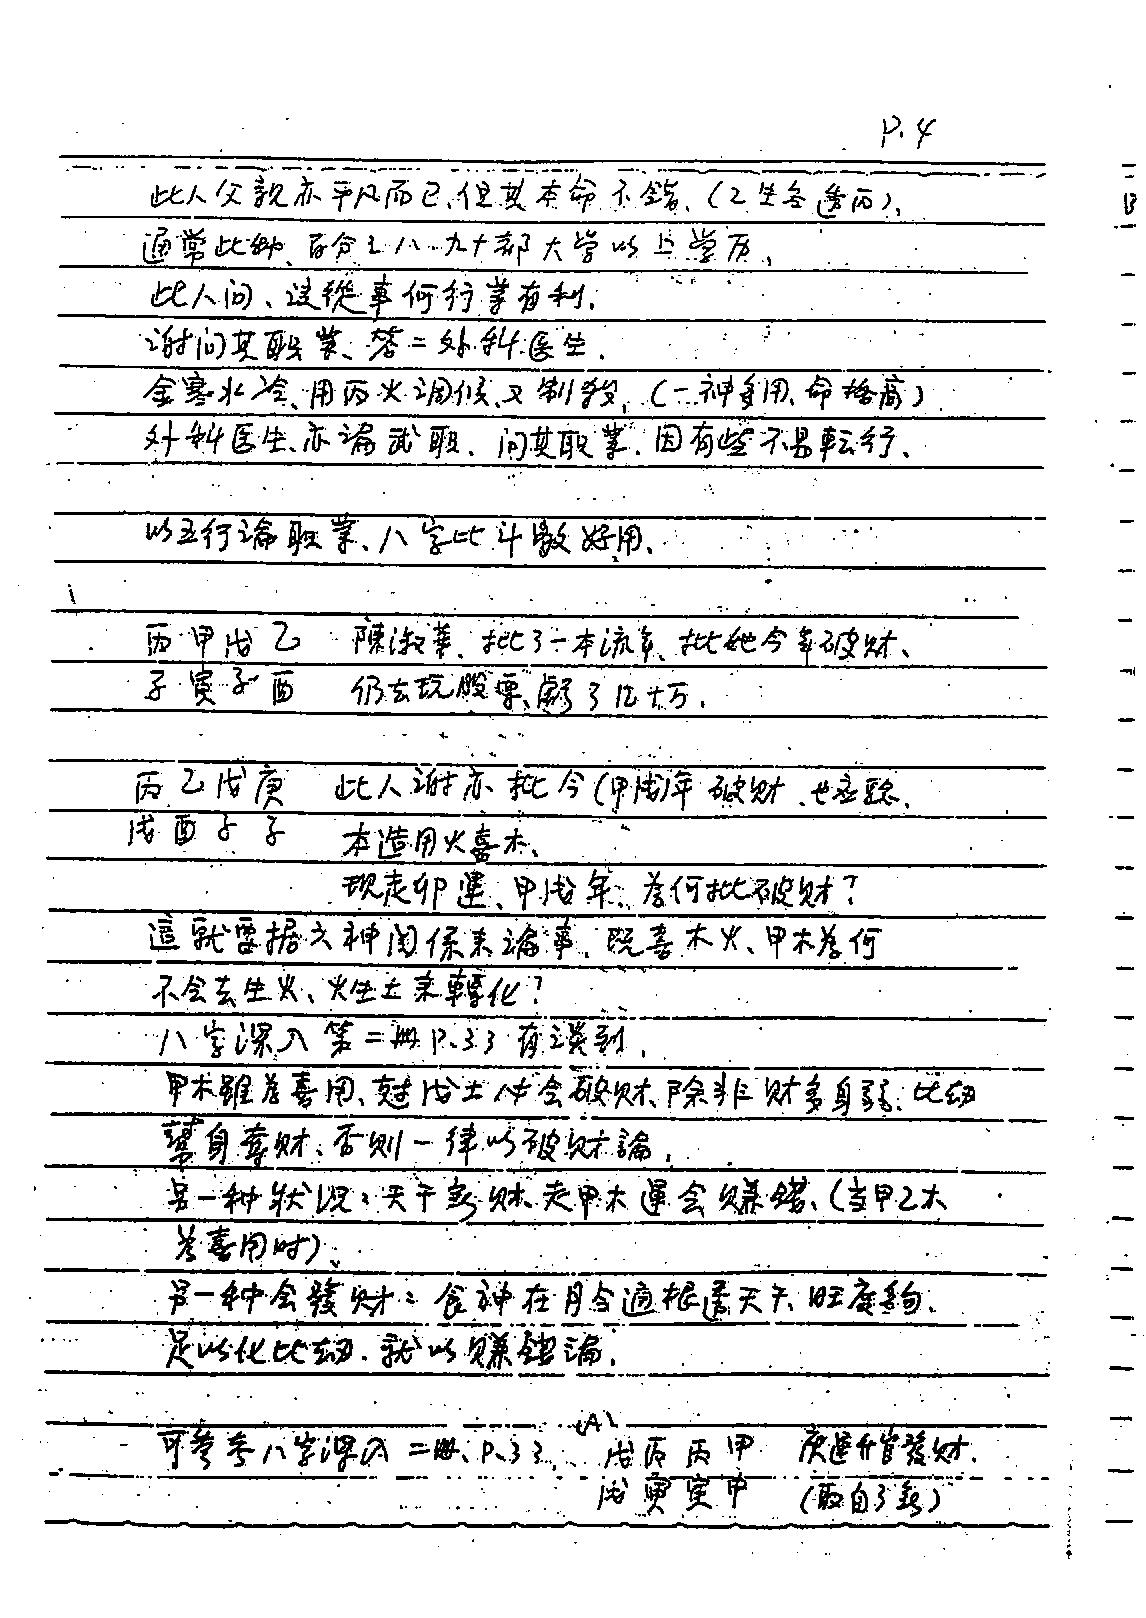 P.4
此人父親亦平凡而已、但其本命不錯、(乙生冬透丙)、
通常此种、百分之八、九十都大学以上学历、
此人问、该從事何行業有利.
谢问其职業、答=外科医生.
金寒水冷、用丙火调候、又制殺、(一神多用、命格高)
外科医生、亦論武职、问其职業、因有些不易転行、
以五行論职業、八字比斗數好用、
丙甲戊乙 陳淑華、批了一本流年、批她今年破财、
子寅子酉 仍去玩股票、虧了几十万.
丙乙戊庚 此人谢亦批今(甲戌)年破财、也应驗.
戌酉子子 本造用火喜木、
现走卯運、甲戌年、為何批破财?
這就要据六神関係來論事、既喜木火、甲木為何
不会去生火、火生土來轉化?
八字深入第二冊P.33有談到.
甲木雖為喜用、尅戊土仍会破财、除非财多身弱、比劫
幫身奪财、否則一律以破财論.
另一种狀況：天干無财、走甲木運会賺錢、(当甲乙木
為喜用时)、
另一种会發财：食神在月令通根透天干、旺度夠、
足以化比劫、就以賺錢論.
可參考八字深入二冊、P.33、(A) 戊丙丙甲 庚運升官發财.
戌寅寅申 (取自了無)